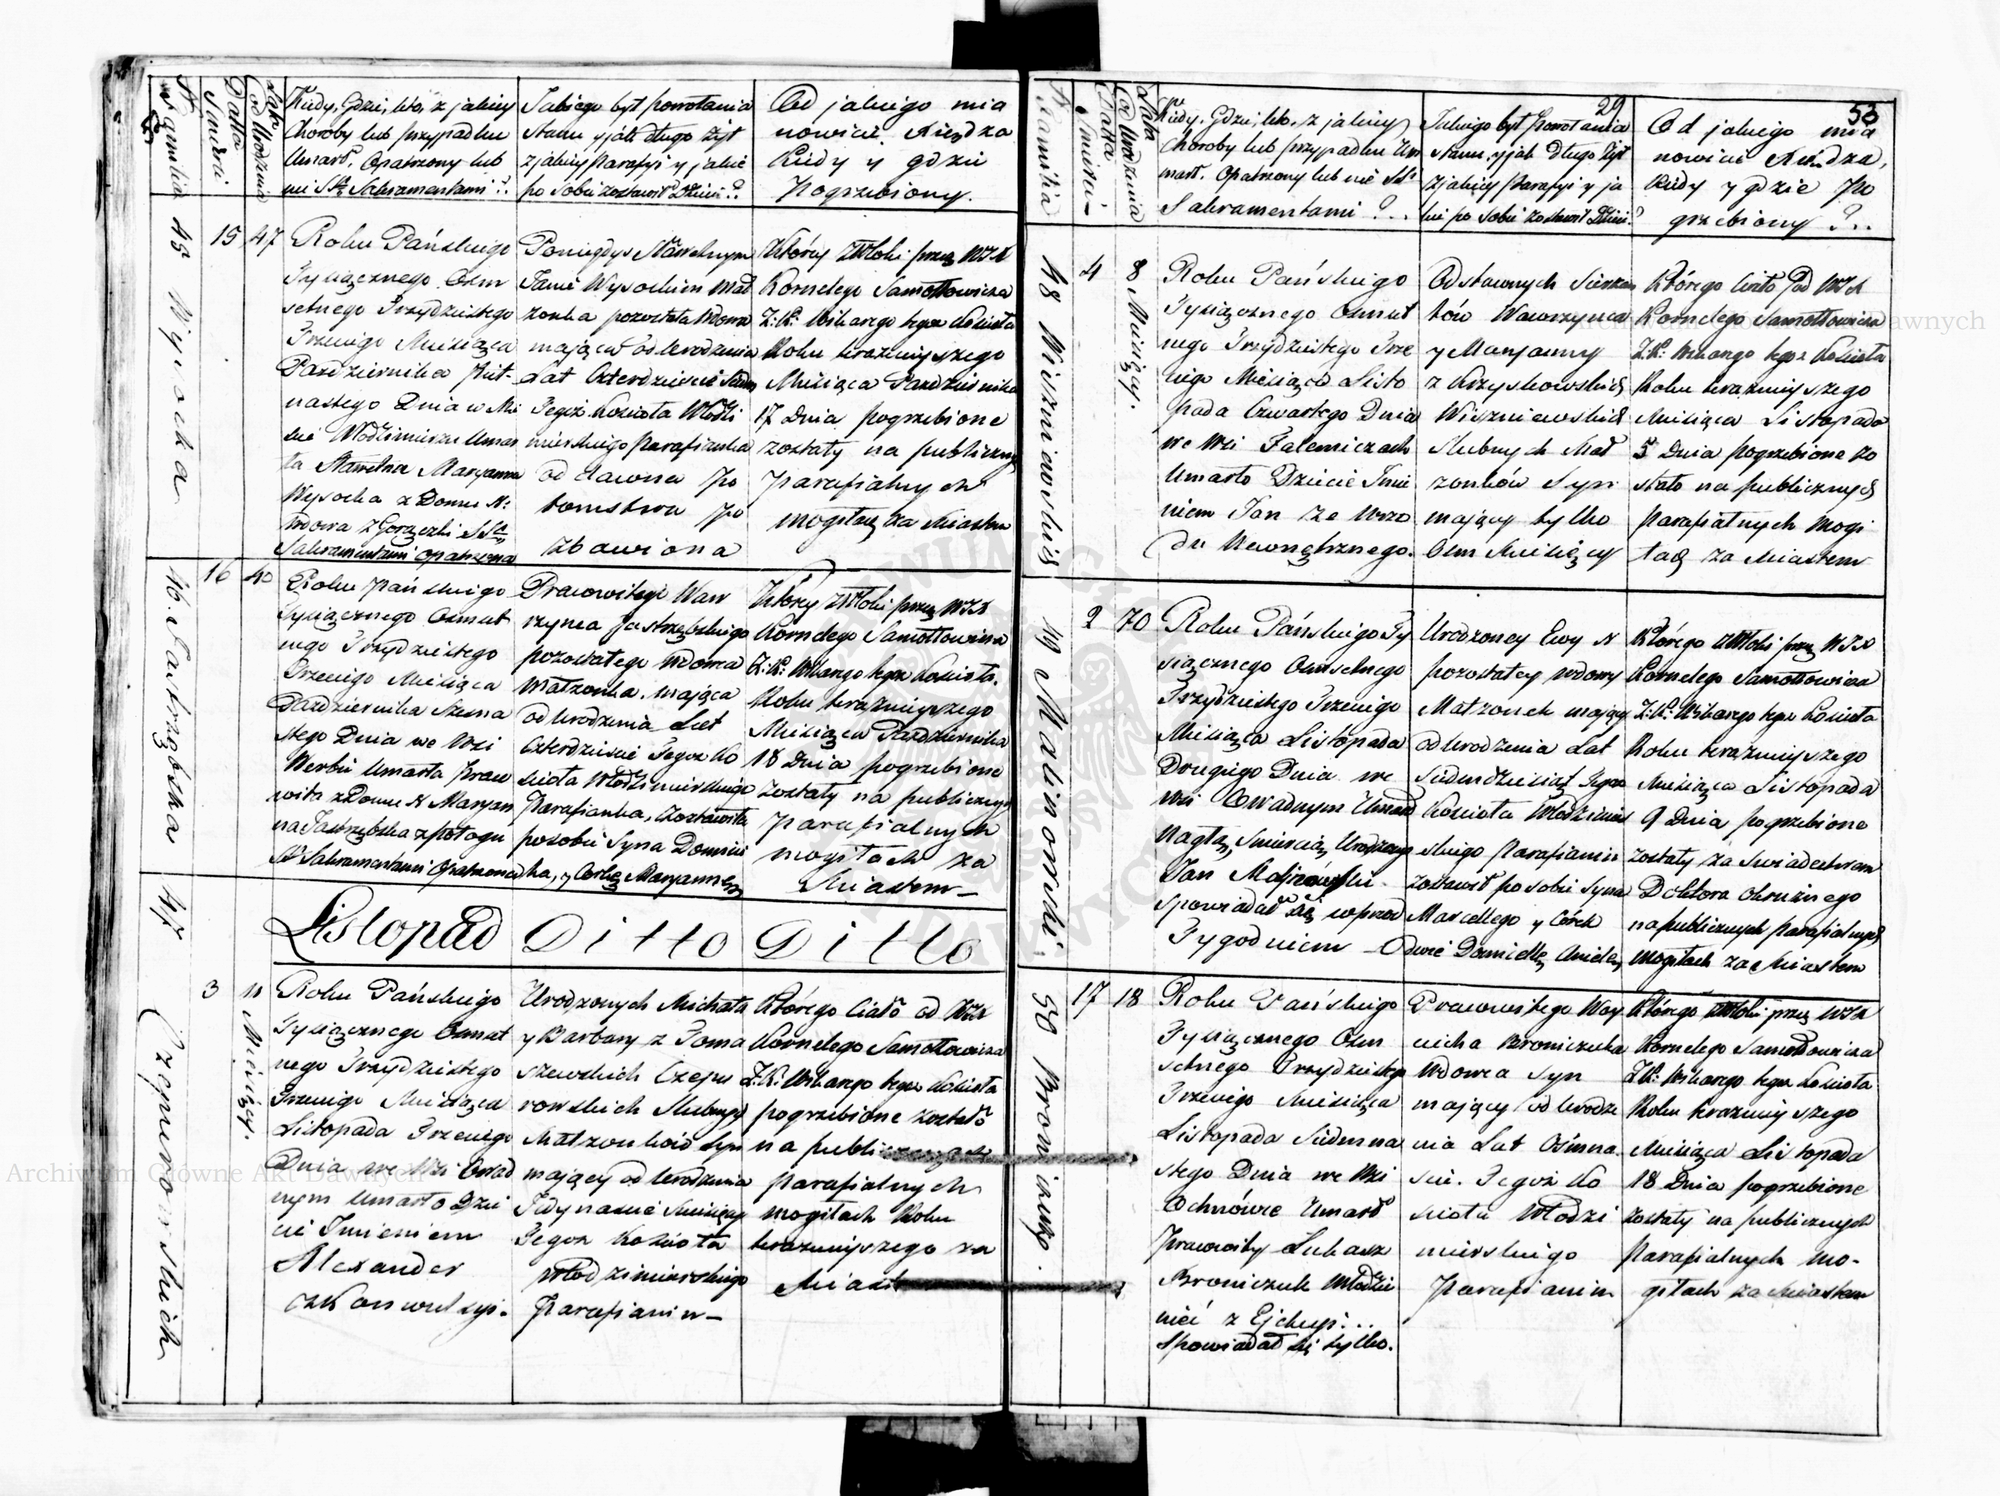 N
Familia
Datta
Śmierci
Lata
od Urodzenia
Kiedy, Gdzie, kto, z jakiey
Choroby lub przypadku
Umarł, Opatrzony lub
nie SS. Sakramentami?
Jakiego był powołania
stanu y jak długo żył
z jakiey Parafyi y jakie
po sobie zostawił Dzieci?
Od jakiego mia
nowicie Xiędza
Kiedy y gdzie
Pogrzebiony.
45 Wysocka
15
47
Roku Pańskiego
Tysiącznego Osm
setnego Trzydziestego
Trzeciego Miesiąca
Pazdziernika Piet-
nastego Dnia w Mie
scie Włodzimierzu Umar
ła Sławetna Maryanna
Wysocka z Domu N:
wdowa z Gorączki SSt
Sakramentami opatrzona
Poniegdys Sławetnym
Janie Wysockim Mał
żonka pozostała Wdowa
mająca od Urodzenia
Lat Czterdziescie Siedm
Tegoż Koscioła Włodzi
mirskiego Parafianka
od dawna Po
tomstwa po
zbawiona
Którey Zwłoki przez WJX
Kornelego Samotłowicza
Z: K: Wikarego tegoż Kościoła
Roku terazniejszego
Miesiąca Pazdziernika
17 Dnia pogrzebione
zostały na publiczny
parafialnych
mogiłach za Miastem
46. Jastrzębska
16
40
Roku Pańskiego
Tysiącznego Osmset
nego Trzydziestego
Trzeciego Miesiąca
Pazdziernika Szesna
stego Dnia we Wsi
Werbie Umarła Praco
wita z Domu N Maryan
na Jastrzębska z połogu
SS Sakramentami Opatrzona
Pracowitego Waw
rzynca Jastrzębskiego
pozostałego Wdowca
Małżonka, mająca
od Urodzenia Lat
Czterdziescie Tegoż Ko
scioła Włodzimirskiego
Parafianka, Zostawiła
posobie Syna Domini
ka, y Corkę Maryannę
Którey Zwłoki przez WJX
Kornelego Samotłowicza
Z: K: Wikarego tegoż Kościoła.
Roku terazniejszego
Miesiąca Pazdziernika
18 Dnia pogrzebione
zostały na publicznych
parafialnych
mogiłach za
Miastem
Listopad Ditto Ditto
47 Czepurowskich
3
11 Miesięcy.
Roku Pańskiego
Tysiącznego Osmset
nego Trzydziestego
Trzeciego Miesiąca
Listopada Trzeciego
Dnia we Wsi Owad
nym Umarło Dzie
cie Imieniem
Alexander
z Konwulsyi.
Urodzonych Michała
y Barbary z Toma
szewskich Czepu
rowskich Slubnych
Małżonków Syn
mający od Urodzenia
Jedynascie Miesięcy
Tegoż Kościoła
Włodzimirskiego
Parafianin
Którego Ciało od WJX
Kornelego Samotłowicza
Z: K: Wikarego tegoż Kościoła
pogrzebione zostało
na publicznych
parafialnych
mogiłach Roku
terazniejszego za
Miast
29
53
N
Familia
Śmierci
Datta
Lata
od Urodzenia
Kiedy, Gdzie, kto, z jakiey
Choroby lub przypadku Um
marł, Opatrzony lub nie SSt
Sakramentami?..
Jakiego był Powołania
Stanu, y jak Długo żył
z jakiey Parafyi y ja
kie po Sobie zostawił Dzieci?
Od jakiego mia
nowicie Xiedza,
Kiedy y gdzie Po
grzebiony?..
48 Wiszniowskich
4
8 Miesięcy.
Roku Pańskiego
Tysiącznego Osmset
nego Trzydziestego Trze
ciego Miesiąca Listo
pada Czwartego Dnia
we Wsi Falemiczach
Umarło Dziecie Imie
niem Jan ze Wrzo
du Wewnętrznego.
Odstawnych Sierżan
tów Wawrzynca
y Maryanny
z Krzyskowskich
Wiszniewskich
Slubnych Mał
żonków Syn
mający tylko
Osm Miesięcy
Którego Ciało Pod WJX
Kornelego Samotłowicza
Z: K: Wikarego tegoż Kościoła
Roku terazniejszego
Miesiąca Listopada
5 Dnia pogrzebione zo
stało na publicznych
parafialnych Mogi
łach za Miastem
49 Malinowski
2
70
Roku Pańskiego Ty
siącznego Osmsetnego
Trzydziestego Trzeciego
Miesiąca Listopada
Drugiego Dnia we
wsi Owadnym Umarł
Nagłą Smiercią Urodzony
Jan Malinowski
Spowiadał się wprzod
Tygodniem
Urodzoney Ewy N
pozostałey wdowy
Małżonek mający
od Urodzenia Lat
Siedmdziesiąt Tegoż
Kościoła Włodzimir
skiego Parafianin
Zostawił po sobie Syna
Marcellego y Córek
dwie Domicellę Anielę
Którego Zwłoki przez WJX
Kornelego Samotłowicza
Z: K: Wikarego tegoż Kościoła
Roku terazniejszego
Miesiąca Listopada
9 Dnia pogrzebione
zostały za Swiadectwem
Doktora okružnego
na publicznych parafialnych
Mogiłach za Miastem
50 Broniczuk.
17
18
Roku Pańskiego
Tysiącznego Osm
setnego Trzydziestego
Trzeciego Miesiąca
Listopada Siedmna
stego Dnia we Wsi
Ochnówce Umarł
Pracowity Lukasz
Broniczuk Młodzie
niec z Ejchepi...
Spowiadał się tylko.
Pracowitego Woy
ciecha Broniczuka
Wdowca Syn
mający od Urodze
nia Lat Ośmna
scie. Tegoż Ko
scioła Włodzi
mirskiego
Parafianin
Którego Zwłoki przez WJX
Kornelego Samotłowicza
Z: K: Wikarego tegoż Kościoła
Roku terazniejszego
Miesiąca Listopada
18 Dnia pogrzebione
zostały na publicznych
Parafialnych Mo-
giłach za Miastem
Archiwum Główne Akt Dawnych